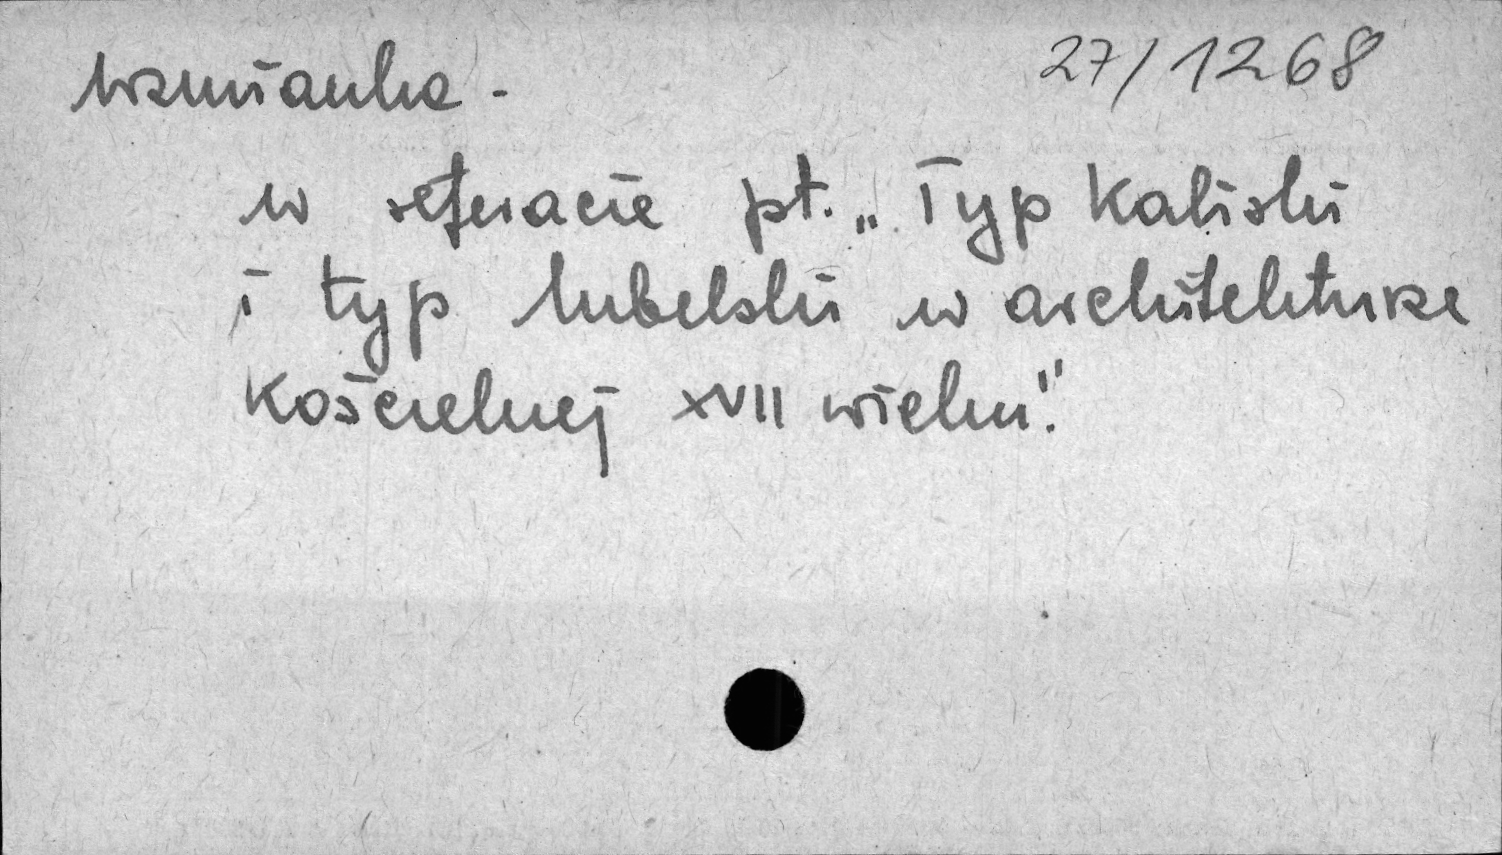 wzmianka - 27/1268
w referacie pt. „Typ Kaliski
i typ lubelski w architekturze
Kościelnej XVII wieku".